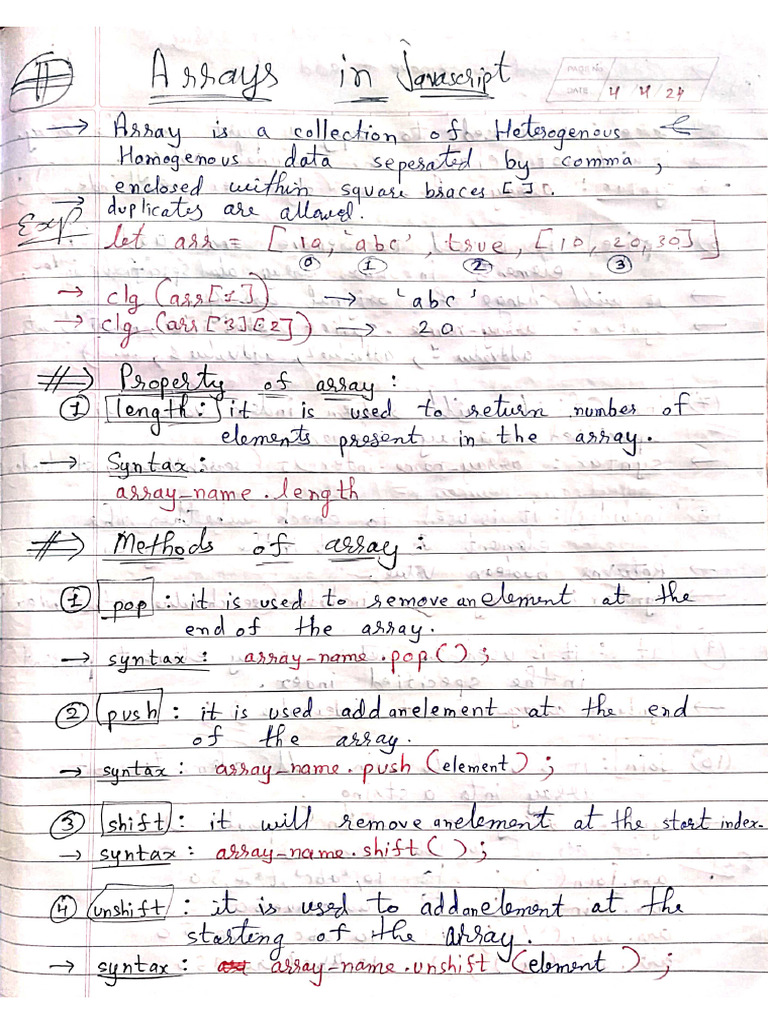 Arrays in Javascript
DATE 4 4 24
→ Array is a collection of Heterogenous &
Homogenous data seperated by comma,
enclosed within square braces [].
→ duplicates are allowed.
Exp
let arr = [10, 'abc', true, [10, 20, 30]]
0 1 2 3
→ clg (arr[1]) → 'abc'
→ clg (arr[3][2]) → 20.
#⇒ Property of array :
① length : it is used to return number of
elements present in the array.
→ Syntax :
array_name.length
#⇒ Methods of array :
① pop : it is used to remove an element at the
end of the array.
→ syntax : array_name.pop();
② push : it is used add an element at the end
of the array.
→ syntax : array_name.push (element);
③ shift : it will remove an element at the start index.
→ syntax : array_name.shift();
④ unshift : it is used to add an element at the
starting of the array.
→ syntax : array_name.unshift (element);